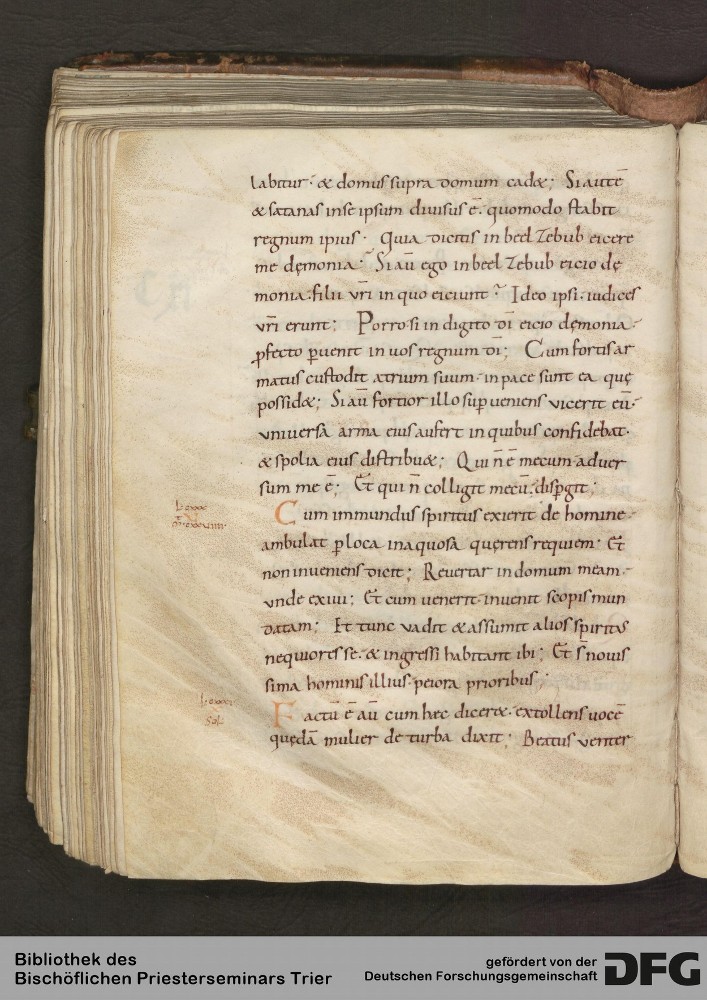 labitur· & domus supra domum cad&; Si autē
& satanas in se ipsum diuisus ē· quomodo stabit
regnum ipius· Quia dicitis in beelzebub eicere
me dęmonia· Si aū ego in beelzebub eicio dę
monia· filii vr̄i in quo eiciunt· Ideo ipsi· iudices
vr̄i erunt; Porro· si in digito dī eicio dęmonia·
ꝓfecto ꝑuenit in uos regnum dī; Cum fortis ar
matus custodit atrium suum· in pace sunt ea quę
possid&; Si aū fortior illo supueniens vicerit eū·
vniuersa arma eius aufert in quibus confidebat·
& spolia eius distribu&; Qui n̄ ē mecum· aduer
sum me ē; Et qui n̄ colligit mecū· dispgit;
l· cxxx
m̄· cxxviiii·
Cum immundus spiritus exierit de homine·
ambulat ꝑ loca inaquosa quęrens requiem· Et
non inueniens dicit; Reuertar in domum meam·
vnde exiui; Et cum uenerit· inuenit scopis mun
datam; Et tunc vadit & assumit alios spiritus
nequiores se· & ingressi habitant ibi; Et s̄ nouis
sima hominis illius· peiora prioribus;
l· cxxxi
sol·
Factū ē aū cum hęc dicer&· extollens uocē
quędā mulier de turba dixit; Beatus venter
Bibliothek des
Bischöflichen Priesterseminars Trier
gefördert von der
Deutschen Forschungsgemeinschaft
DFG